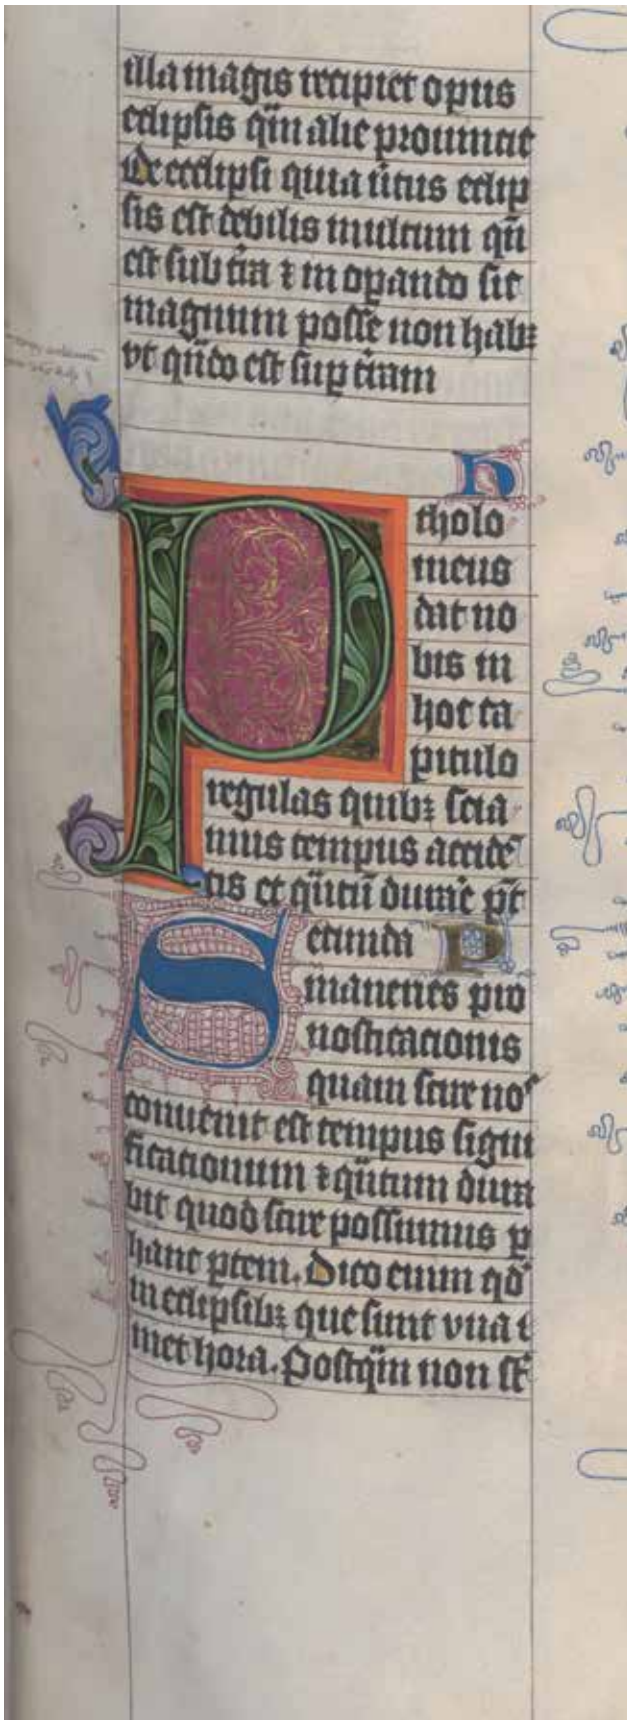 illa magis recipiet opus
eclipsis qm̄ alie proueniāt
De ecclipsi quia uirtus eclip
sis est debilis multum qn̄
est sub tr̄a ⁊ in oꝑando sic
magnum posse non habꝫ
vt qn̄do est suꝑ terram
P
tholo
meus
dat no
bis in
hoc ca
pitulo
regulas quibꝫ scia
mus tempus accidē
tis et qn̄tū durare pt̄
Secunda P
manenes pro
nosticacionis
quam scire no
conuenit est tempus signi
ficacionum ⁊ qn̄tum dura
bit quod scire possumus ꝑ
hanc ꝑtem. Dico enim qd̓
in eclipsibꝫ que sunt vna i
met hora. Postqm̄ non st̄